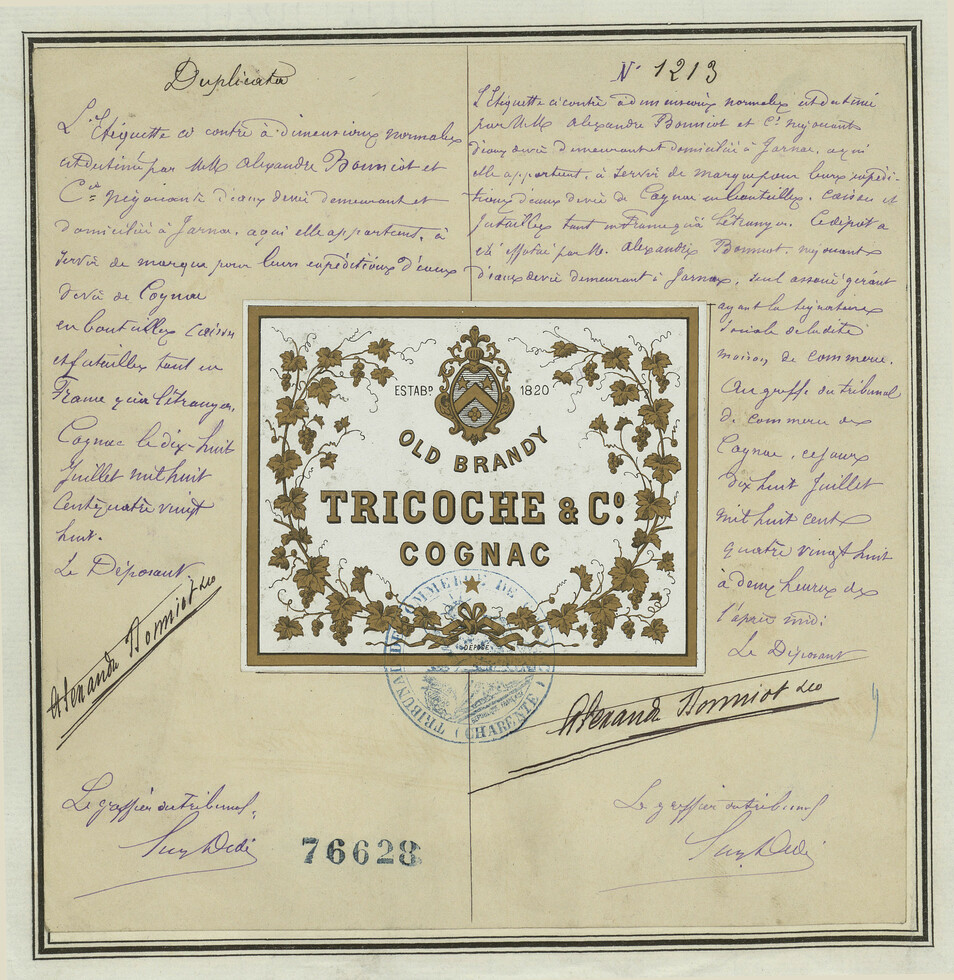 Duplicata
L'Etiquette ci contre à dimensions normales
est destiné par MM Alexandre Bonniot et
Cie négociants d'eaux devie demeurant et
domiciliés à Jarnac, aqui elle appartient, à
servir de marque pour leurs expéditions d'eaux
devie de Cognac
en bouteilles caisses
et futailles tant en
France qu'à l'étranger.
Cognac le dix-huit
Juillet mil huit
cent quatre vingt
huit.
Le Déposant
Alexandre Bonniot & Co
Le greffier du tribunal,
76628
N° 1213
L'Etiquette ci contre à dimensions normales est destiné
par MM Alexandre Bonniot et Cie négociants
d'eaux devie demeurant et domiciliés à Jarnac, aqui
elle appartient, à servir de marque pour leurs expédi-
tions d'eaux devie de Cognac en bouteilles, caisses et
futailles tant en France qu'à l'étranger. Ce dépôt a
été effectué par M. Alexandre Bonniot, négociant
d'eaux devie demeurant à Jarnac, seul associé gérant
ayant la signature
sociale de la dite
maison de commerce.
Au greffe du tribunal
de commerce de
Cognac, ce jour
dix huit Juillet
mil huit cent
quatre vingt huit
à deux heures de
l'après midi
Le Déposant
Alexandre Bonniot & Co
Le greffier du tribunal
ESTABD 1820
OLD BRANDY
TRICOCHE & Co.
COGNAC
DÉPOSÉ
TRIBUNAL DE COMMERCE DE
(CHARENTE)